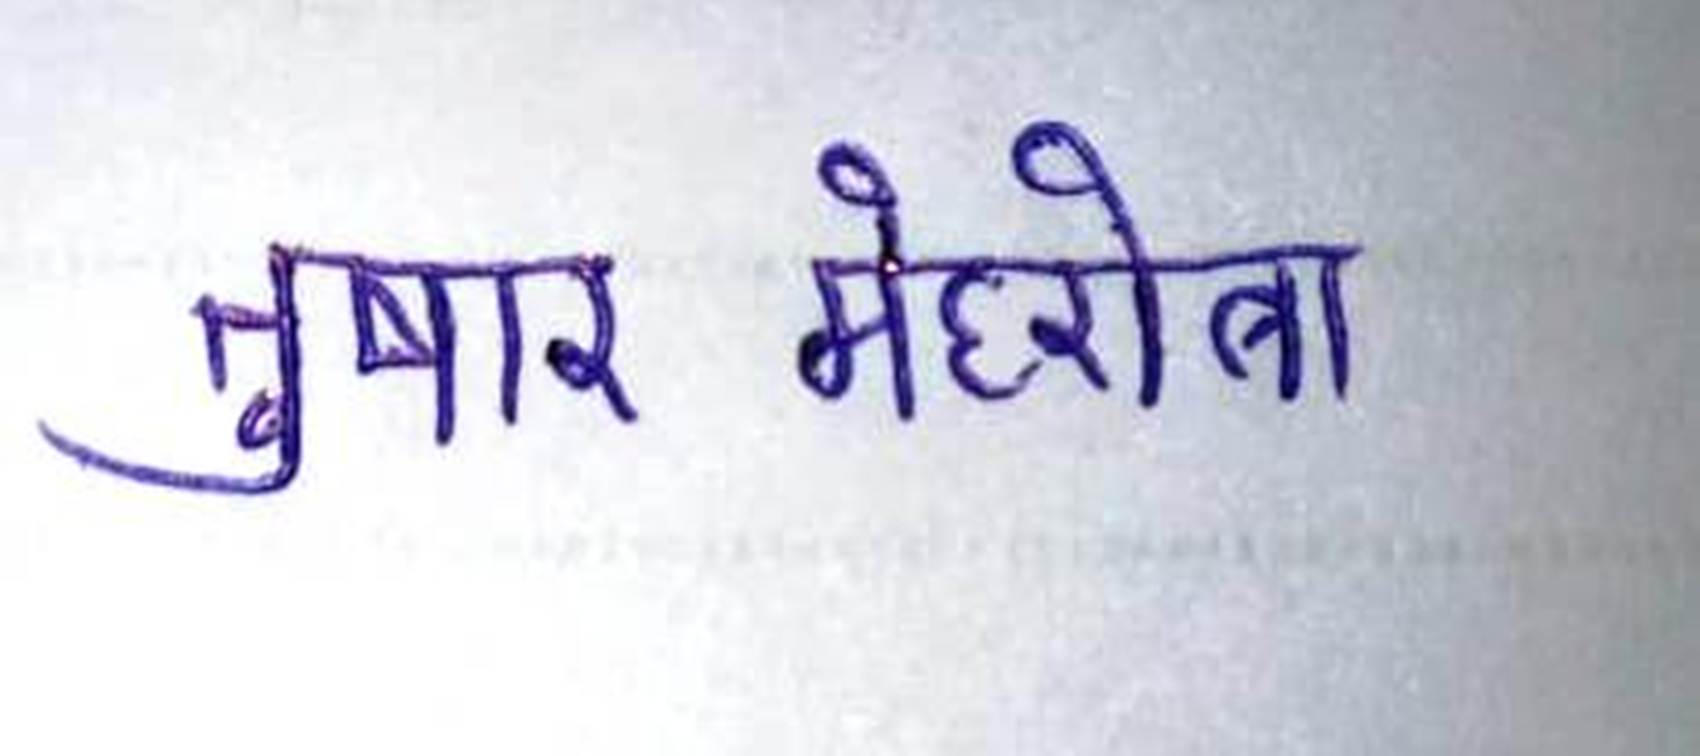 तुषार मेहरोत्रा